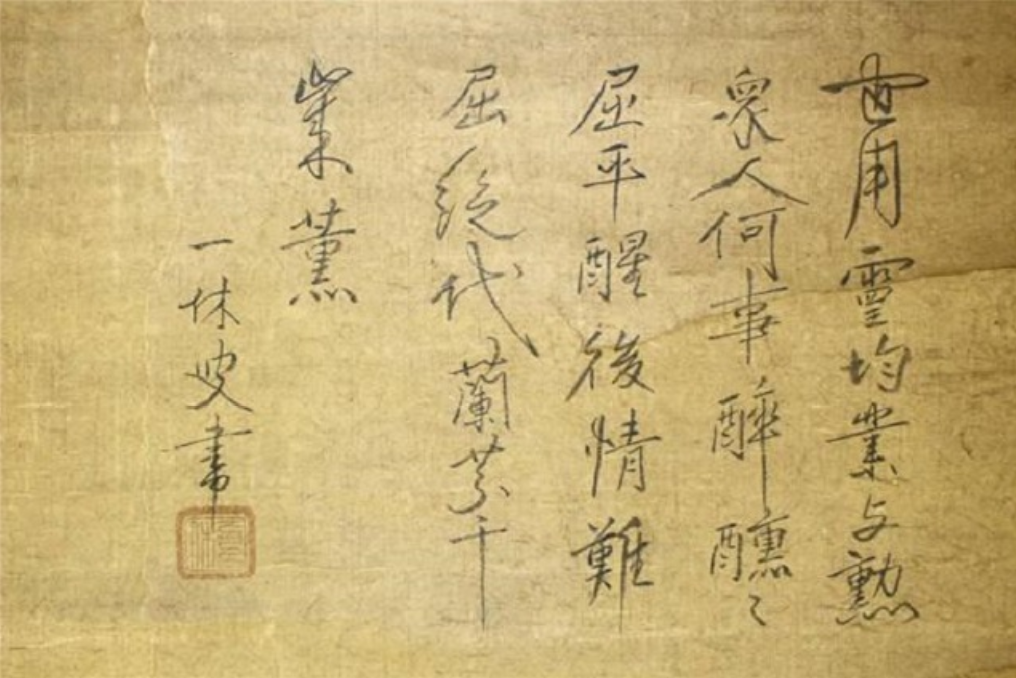 世用霊均業与勲
衆人何事醉醺〻
屈平醒後情難
屈絶代蘭芬千
薫
一休叟書